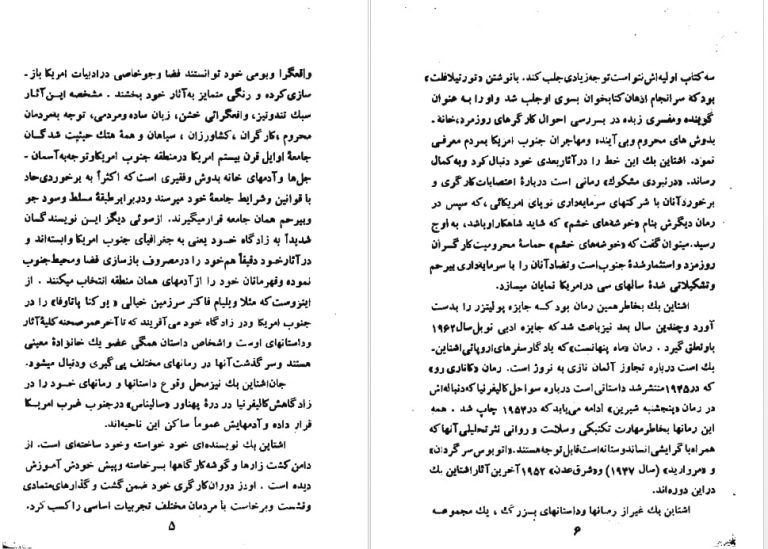 واقعگرا وبومی خود توانستند فضا وجوخاصی درادبیات امریکا باز-
سازی‌کرده و رنگی متمایز به‌آثار خود بخشند . مشخصه این‌آثار
سبك تندوتیز، واقعگرائی خشن، زبان ساده‌ومردمی، توجه به‌مردمان
محروم ،کارگران ،کشاورزان ، سیاهان و همهٔ هتك حیثیت شدگان
جامعهٔ اوایل قرن بیستم امریکا درمنطقه جنوب امریکاوتوجه‌به‌آسمان-
جل‌ها وآدمهای خانه بدوش وفقیری است‌که اکثراً به برخوردی‌حاد
با قوانین وشرایط جامعهٔ خود میرسند ودربرابرطبقهٔ مسلط وسود جو
وبیرحم همان جامعه قرارمیگیرند. ازسوئی دیگر این نویسندگان
شدیداً به زادگاه خود یعنی به جغرافیای جنوب امریکا وابسته‌اند و
درآثارخود دقیقاً هم‌خود را درمصروف بازسازی فضا ومحیط‌جنوب
نموده وقهرمانان خود را ازآدمهای همان منطقه انتخاب میکنند . از
اینروست‌که مثلا ویلیام فاکنر سرزمین خیالی « یوکنا پاتاوفا» را در
جنوب امریکا ودر زادگاه خود می‌آفریند که‌تا‌آخرعمرصحنه‌کلیهٔ‌آثار
وداستانهای اوست واشخاص داستان همگی عضو یك خانوادهٔ معینی
هستند وسرگذشت‌آنها در رمانهای مختلف پی‌گیری ودنبال میشود.
جان‌اشتاین بك نیزمحل وقوع داستانها و رمانهای خود را در
زادگاهش کالیفرنیا در درهٔ پهناور «سالیناس» درجنوب غرب امریکا
قرار داده وآدمهایش عموماً ساکن این ناحیه‌اند.
اشتاین بك نویسنده‌ای خود خواسته وخود ساخته‌ای است. از
دامن کشت زارها و گوشه‌کارگاهها بسرخاسته وپیش خودش آموزش
دیده است . اودر دوران‌کارگری خود ضمن گشت و گذارهای‌متمادی
ونشست وبرخاست با مردمان مختلف تجربیات اساسی راکسب کرد.
۵
سه‌کتاب اولیه‌اش نتوانست توجه‌زیادی جلب کند. بانوشتن «تورتیلافلت»
بودکه سرانجام اذهان‌کتابخوان بسوی اوجلب شد واورا به عنوان
گوینده ومفسری زبده در بررسی احوال کارگرهای روزمزد،خانه-
بدوش های محروم وبی‌آینده ومهاجران جنوب امریکا بمردم معرفی
نمود. اشتاین بك این خط را درآثاربعدی خود دنبال‌کرد وبه‌کمال
رساند. «درنبردی مشکوك» رمانی است دربارهٔ اعتصابات‌کارگری و
برخوردآنان با شرکتهای سرمایه‌داری نوپای امریکائی،که سپس در
رمان دیگرش بنام «خوشه‌های خشم» که شاید شاهکاراوباشد، به اوج
رسید. میتوان‌گفت‌که «خوشه‌های خشم» حماسهٔ محرومیت‌کارگران
روزمزد واستثمارشدهٔ جنوب‌است وتضادآنان را با سرمایه‌داری بیرحم
وتشکیلاتی شدهٔ سالهای سی درامریکا نمایان میسازد.
اشتاین بك بخاطرهمین رمان بود که جایزه پولیتزر را بدست
آورد وچندین سال بعد نیزباعث شدکه جایزه ادبی نوبل‌سال۱۹۶۲
باوتعلق گیرد . رمان «ماه پنهانست»که یادگارسفرهای‌اروپائی‌اشتاین-
بك است درباره تجاوز آلمان نازی به نروژ است. رمان «کاناری رو»
که در۱۹۴۵منتشرشد داستانی است درباره سواحل‌کالیفرنیا که‌دنباله‌اش
در رمان «پنجشنبه شیرین» ادامه می‌یابد که در۱۹۵۴ چاپ شد . همه
این رمانها بخاطرمهارت تکنیکی وسلامت و روانی نثرتحلیلی آنها که
همراه باگرایشی انساندوستانه است‌قابل‌توجه‌هستند. «اتوبوس سرگردان»
و «مروارید» (سال ۱۹۴۷) و«شرق‌عدن» ۱۹۵۲ آخرین آثاراشتاین بك
دراین دوره‌اند.
اشتاین بك غیراز رمانها وداستانهای بزرگ ، یك مجموعه
۶